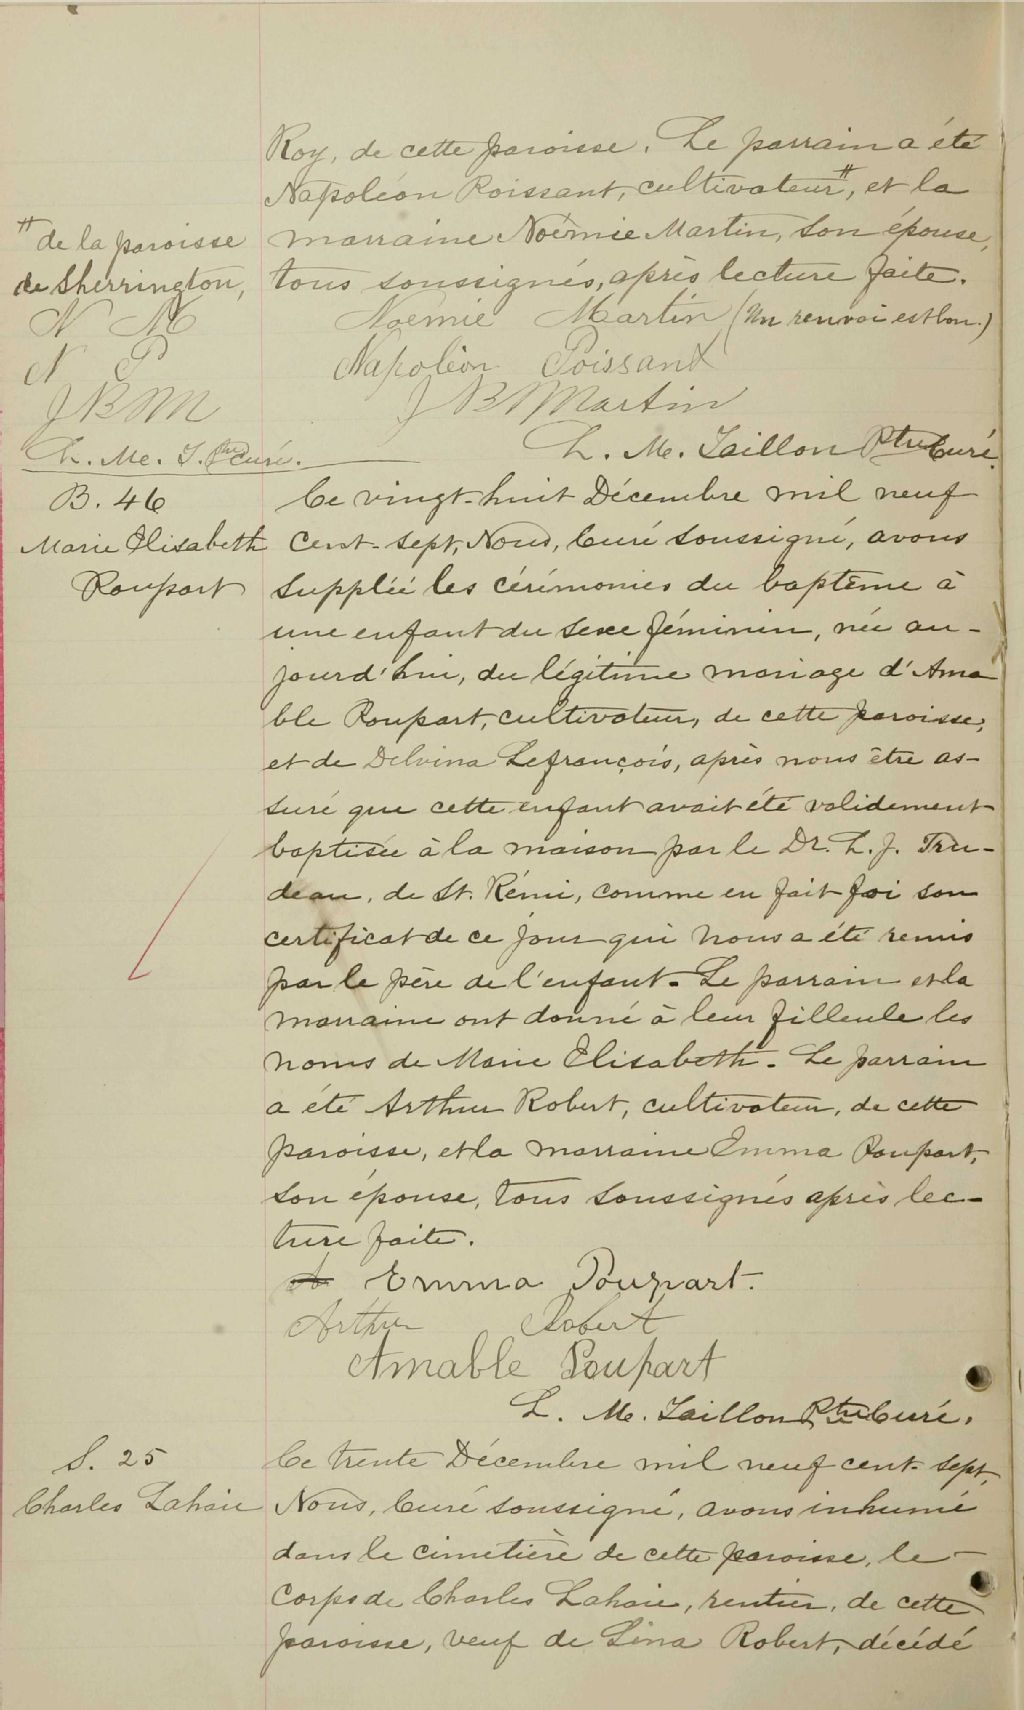 Roy, de cette paroisse. Le parrain a été
Napoléon Poissant, cultivateur #, et la
# de la paroisse
de Sherrington,
N M
N P
J B M
L. M. T. Ptre curé.
marraine Noémie Martin, son épouse,
tous soussignés, après lecture faite.
Noémie Martin (Un renvoi est bon.)
Napoléon Poissant
J B Martin
L. M. Taillon Ptre Curé.
B. 46
Marie Elisabeth
Poupart
Ce vingt-huit Décembre mil neuf
cent-sept, Nous, Curé soussigné, avons
suppléé les cérémonies du baptême à
une enfant du sexe féminin, née au-
jourd'hui, du légitime mariage d'Ama
ble Poupart, cultivateur, de cette paroisse,
et de Delvina Lefrançois, après nous être as-
suré que cette enfant avait été validement
baptisée à la maison par le Dr. L. J. Tru-
deau, de St. Rémi, comme en fait foi son
certificat de ce jour qui nous a été remis
par le père de l'enfant. Le parrain et la
marraine ont donné à leur filleule les
noms de Marie Elisabeth. Le parrain
a été Arthur Robert, cultivateur, de cette
paroisse, et la marraine Emma Poupart,
son épouse, tous soussignés après lec-
ture faite.
Emma Poupart.
Arthur Robert
Amable Poupart
L. M. Taillon Ptre Curé.
S. 25
Charles Lahaie
Ce trente Décembre mil neuf cent-sept,
Nous, Curé soussigné, avons inhumé
dans le cimetière de cette paroisse, le
corps de Charles Lahaie, rentier, de cette
paroisse, veuf de Lina Robert, décédé